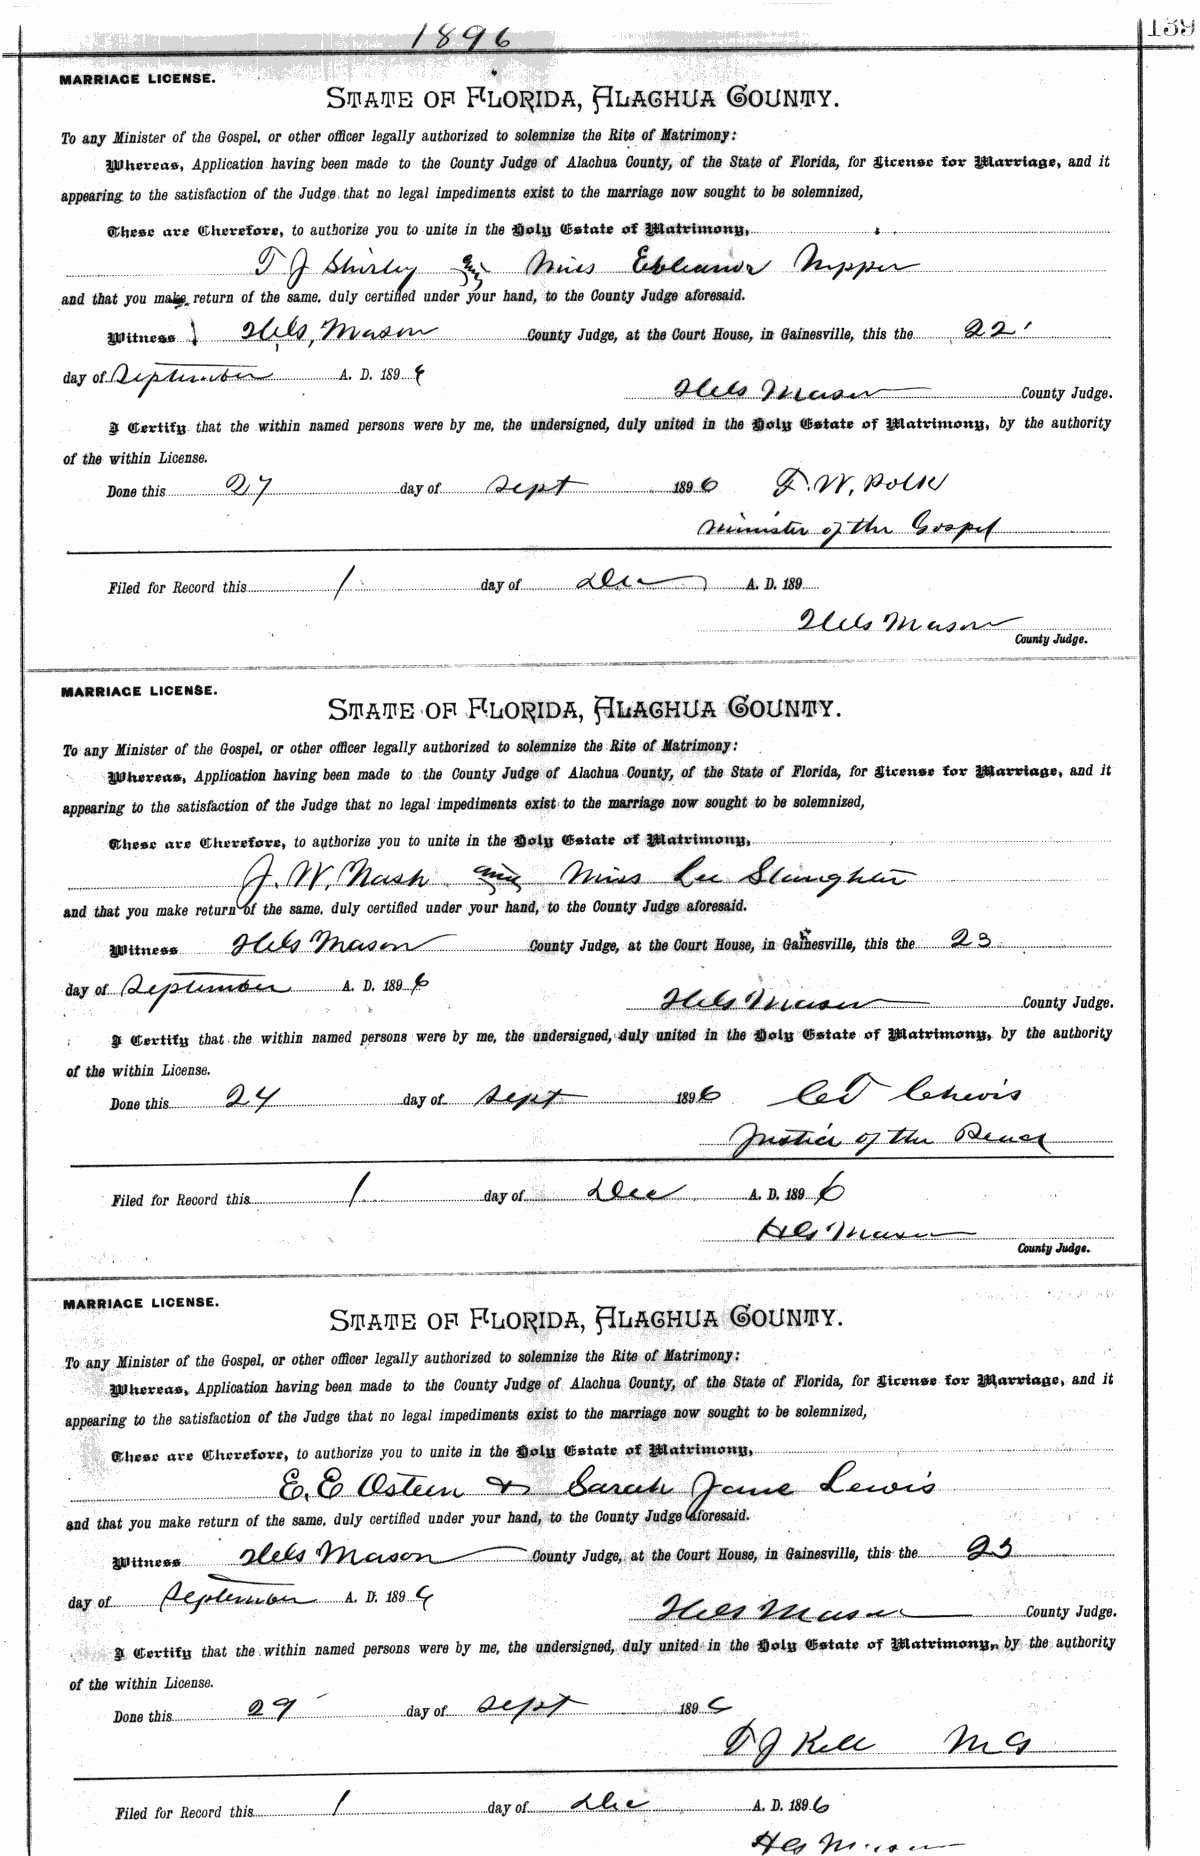 1896
139
MARRIAGE LICENSE.
STATE OF FLORIDA, ALACHUA COUNTY.
To any Minister of the Gospel, or other officer legally authorized to solemnize the Rite of Matrimony:
Whereas, Application having been made to the County Judge of Alachua County, of the State of Florida, for License for Marriage, and it
appearing to the satisfaction of the Judge that no legal impediments exist to the marriage now sought to be solemnized,
These are Therefore, to authorize you to unite in the Holy Estate of Matrimony,
T J Shirley and Miss Nipper
and that you make return of the same, duly certified under your hand, to the County Judge aforesaid.
Witness Mason County Judge, at the Court House, in Gainesville, this the 22
day of September A. D. 1896
Mason County Judge.
I Certify that the within named persons were by me, the undersigned, duly united in the Holy Estate of Matrimony, by the authority
of the within License.
Done this 27 day of Sept 1896 W. Polk
Minister of the Gospel
Filed for Record this 1 day of Dec A. D. 189
Mason
County Judge.
MARRIAGE LICENSE.
STATE OF FLORIDA, ALACHUA COUNTY.
To any Minister of the Gospel, or other officer legally authorized to solemnize the Rite of Matrimony:
Whereas, Application having been made to the County Judge of Alachua County, of the State of Florida, for License for Marriage, and it
appearing to the satisfaction of the Judge that no legal impediments exist to the marriage now sought to be solemnized,
These are Therefore, to authorize you to unite in the Holy Estate of Matrimony,
J. W. Nash and Miss Lee Slaughter
and that you make return of the same, duly certified under your hand, to the County Judge aforesaid.
Witness Mason County Judge, at the Court House, in Gainesville, this the 23
day of September A. D. 1896
Mason County Judge.
I Certify that the within named persons were by me, the undersigned, duly united in the Holy Estate of Matrimony, by the authority
of the within License.
Done this 24 day of Sept 1896
Justice of the Peace
Filed for Record this 1 day of Dec A. D. 1896
Mason
County Judge.
MARRIAGE LICENSE.
STATE OF FLORIDA, ALACHUA COUNTY.
To any Minister of the Gospel, or other officer legally authorized to solemnize the Rite of Matrimony:
Whereas, Application having been made to the County Judge of Alachua County, of the State of Florida, for License for Marriage, and it
appearing to the satisfaction of the Judge that no legal impediments exist to the marriage now sought to be solemnized,
These are Therefore, to authorize you to unite in the Holy Estate of Matrimony,
E. E Osteen & Sarah Jane Lewis
and that you make return of the same, duly certified under your hand, to the County Judge aforesaid.
Witness Mason County Judge, at the Court House, in Gainesville, this the 23
day of September A. D. 1896
Mason County Judge.
I Certify that the within named persons were by me, the undersigned, duly united in the Holy Estate of Matrimony, by the authority
of the within License.
Done this 29 day of Sept 1896
M G
Filed for Record this 1 day of Dec A. D. 1896
Mason